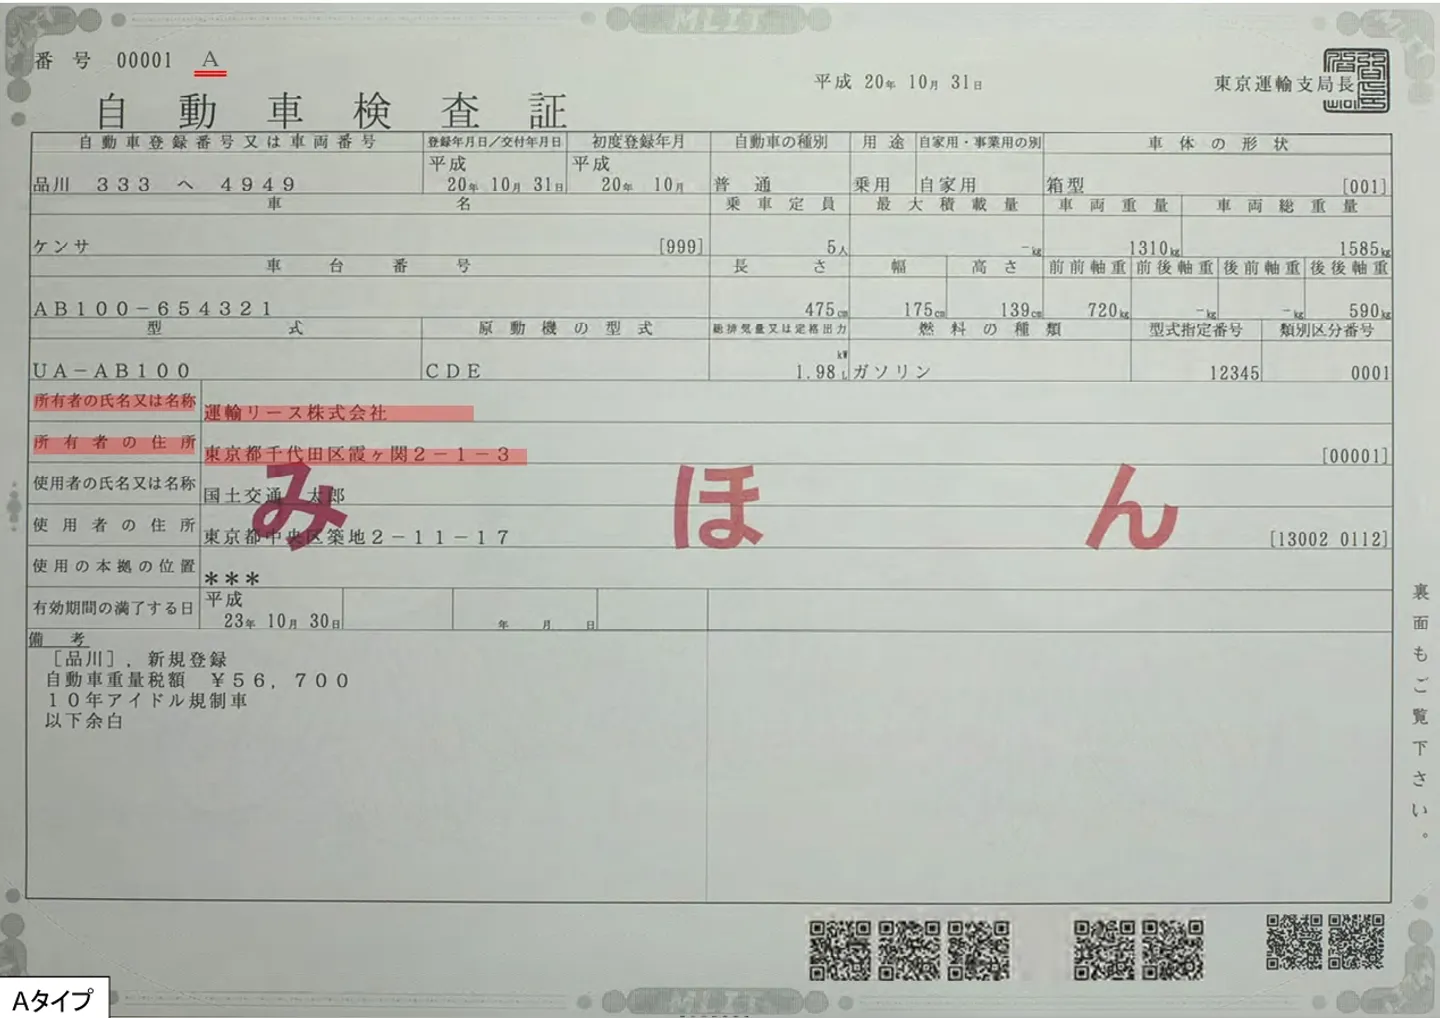 MLIT
番号 00001 A
平成 20年 10月 31日
東京運輸支局長
自動車検査証
自動車登録番号又は車両番号 登録年月日／交付年月日 初度登録年月 自動車の種別 用途 自家用・事業用の別 車体の形状
平成 平成
品川 ３３３ へ ４９４９ 20年 10月 31日 20年 10月 普通 乗用 自家用 箱型 [001]
車名 乗車定員 最大積載量 車両重量 車両総重量
ケンサ [999] 5人 -kg 1310kg 1585kg
車台番号 長さ 幅 高さ 前前軸重 前後軸重 後前軸重 後後軸重
ＡＢ１００－６５４３２１ 475cm 175cm 139cm 720kg -kg -kg 590kg
型式 原動機の型式 総排気量又は定格出力 燃料の種類 型式指定番号 類別区分番号
kW
ＵＡ－ＡＢ１００ ＣＤＥ 1.98L ガソリン 12345 0001
所有者の氏名又は名称 運輸リース株式会社
所有者の住所 東京都千代田区霞ヶ関２－１－３ [00001]
使用者の氏名又は名称 国土交通 太郎
みほん
使用者の住所 東京都中央区築地２－１１－１７ [13002 0112]
使用の本拠の位置 ＊＊＊
有効期間の満了する日 平成
23年 10月 30日 年 月 日
備考
［品川］，新規登録
自動車重量税額 ￥５６，７００
１０年アイドル規制車
以下余白
裏面もご覧下さい。
Aタイプ
MLIT